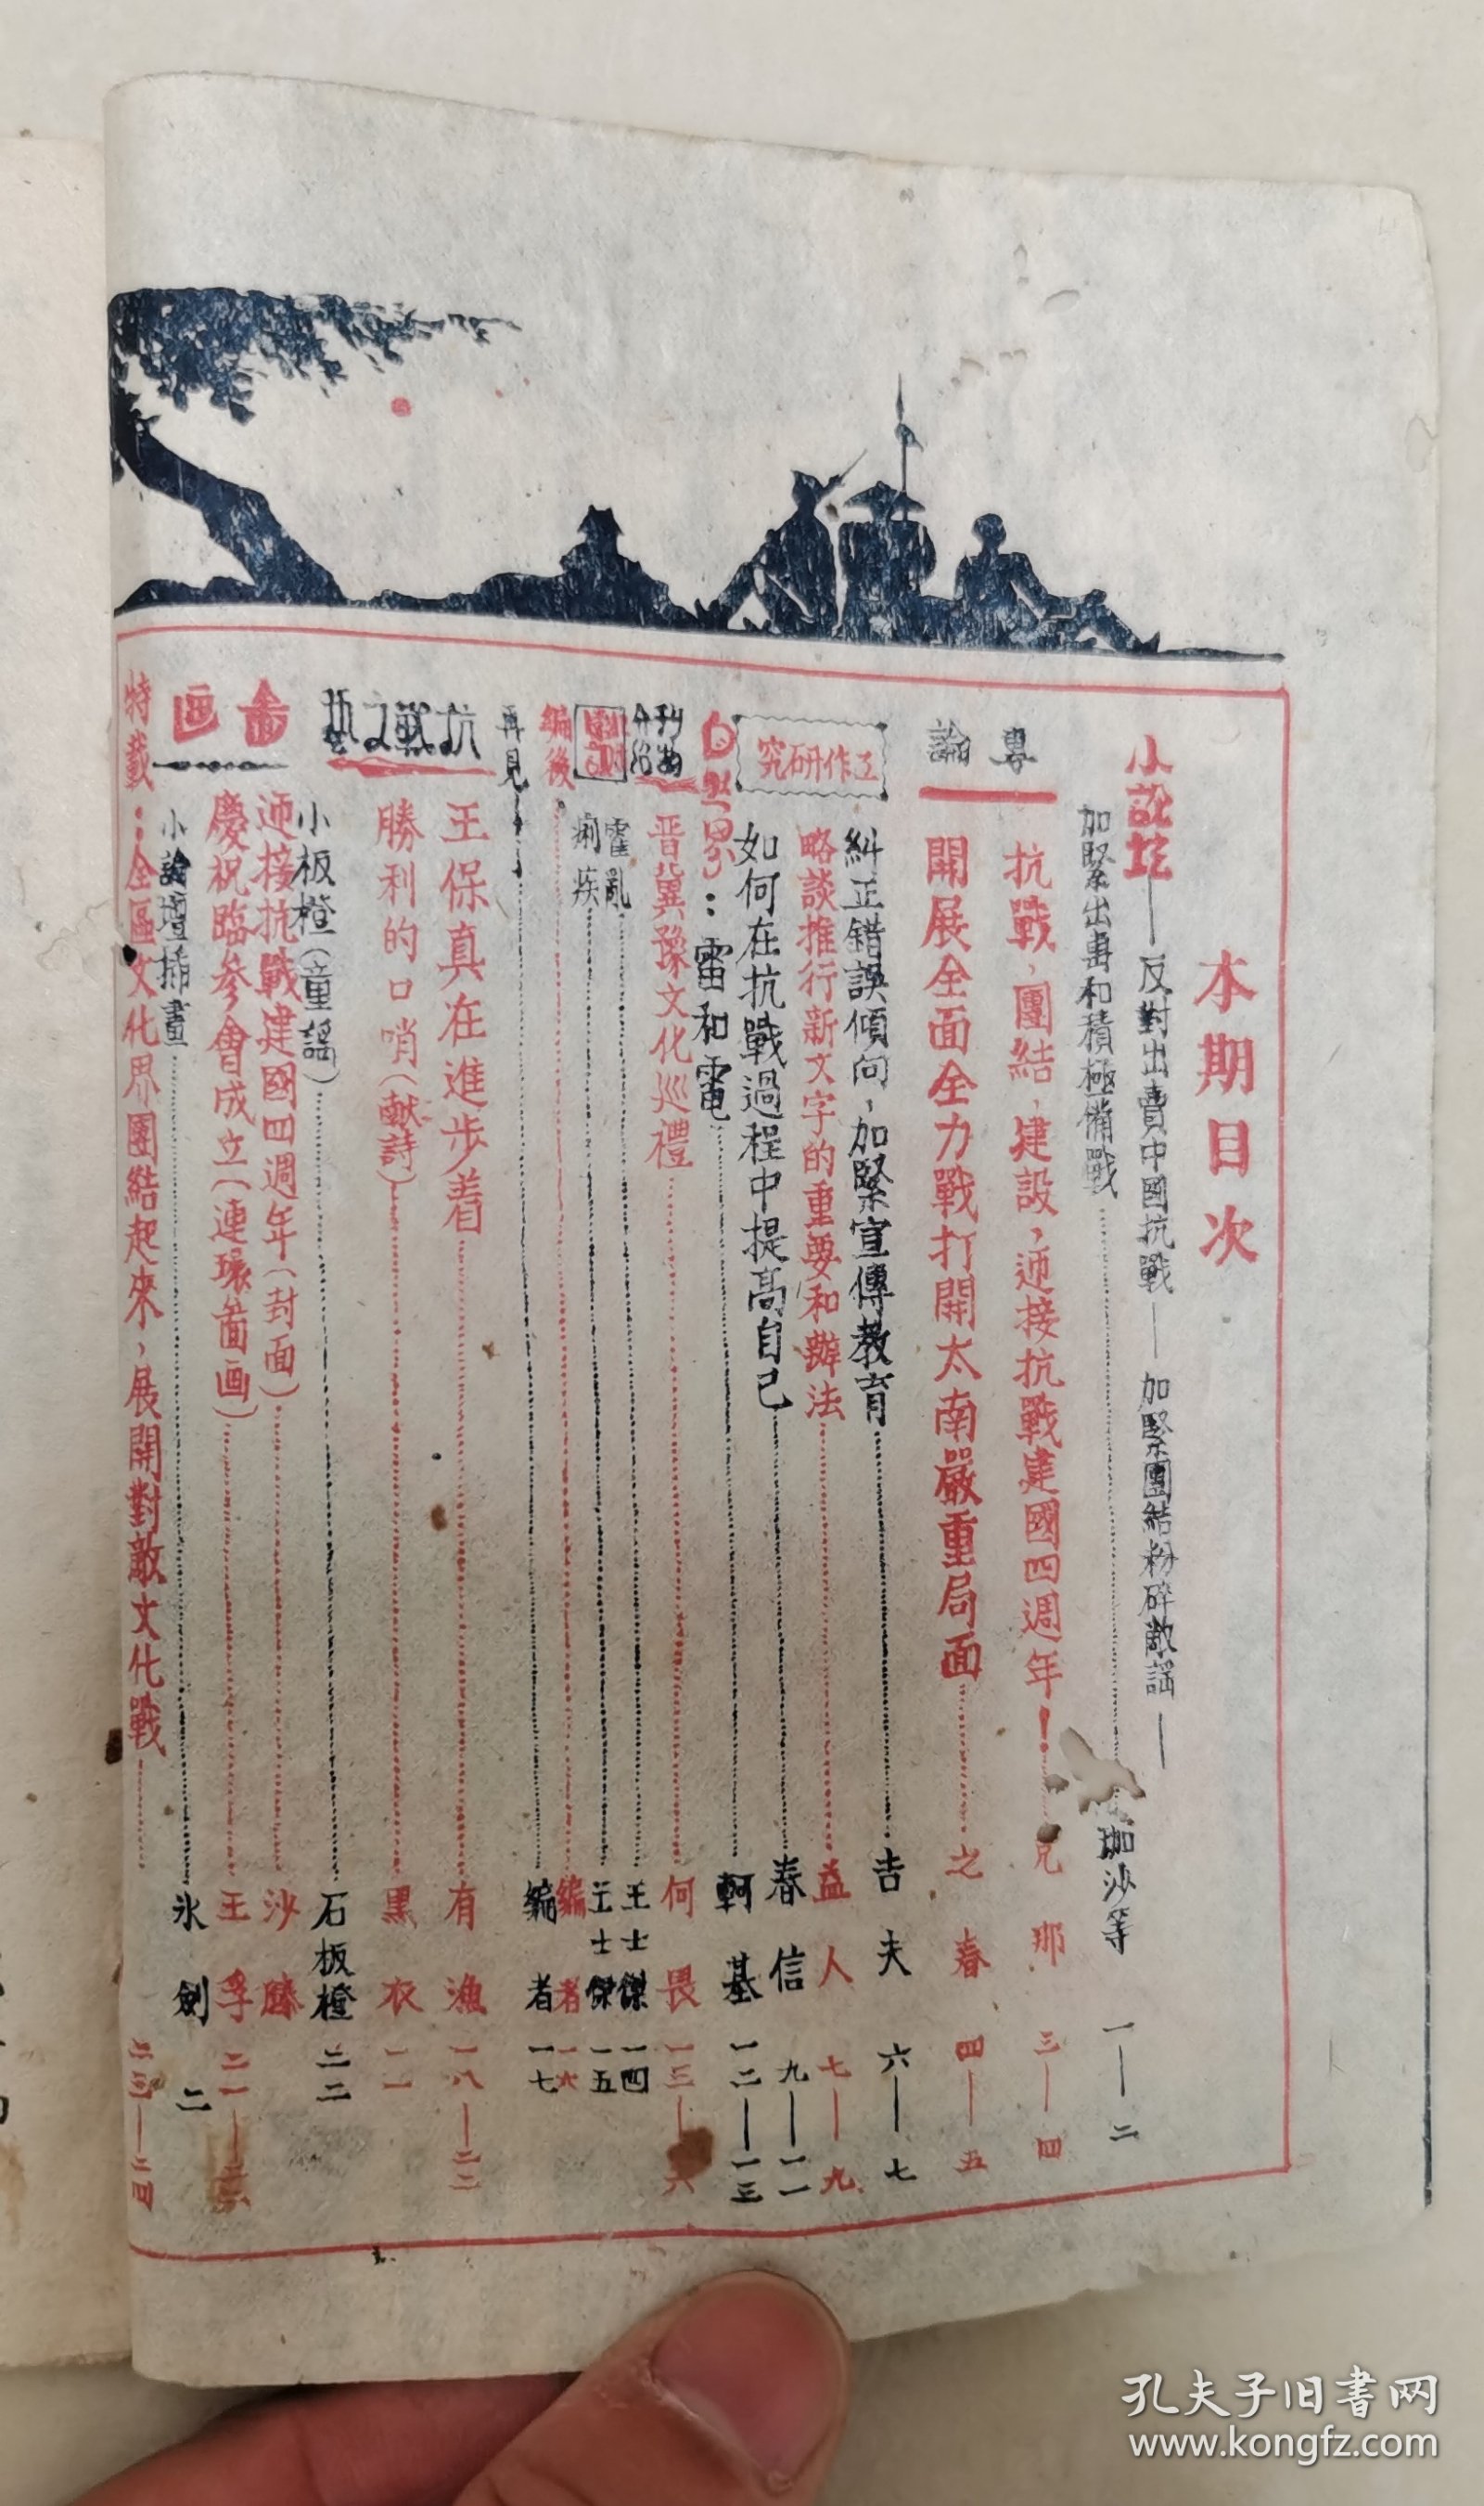 本期目次
小說坛——反對出賣中國抗戰——加緊團結粉碎敵謠——
加緊出擊和積極備戰 珈沙等 一——二
專論
抗戰、團結、建設，迎接抗戰建國四週年！ 兄那 三——四
開展全面全力戰打開太南嚴重局面 之春 四——五
工作研究
糾正錯誤傾向，加緊宣傳教育 吉夫 六——七
略談推行新文字的重要和辦法 益人 七——九
如何在抗戰過程中提高自己 春信 九——一一
自然界：雷和電 軻基 一二——一三
刊物介紹
晉冀豫文化巡禮 何畏 一三——六
霍亂 王士傑 一四
痢疾 王士傑 一五
編後 編者 一六
再見 編者 一七
抗戰文藝
王保真在進步着 有漁 一八——二二
勝利的口哨（獻詩） 黑衣 一一
小板橙（童謠） 石板橙 二二
畫画
迎接抗戰建國四週年（封面） 沙
慶祝臨參會成立（連環畫画） 王孚 二一
小論壇插畫 氷劍 二
特載：全區文化界團結起來，展開對敵文化戰 二三——二四
孔夫子旧書网
www.kongfz.com